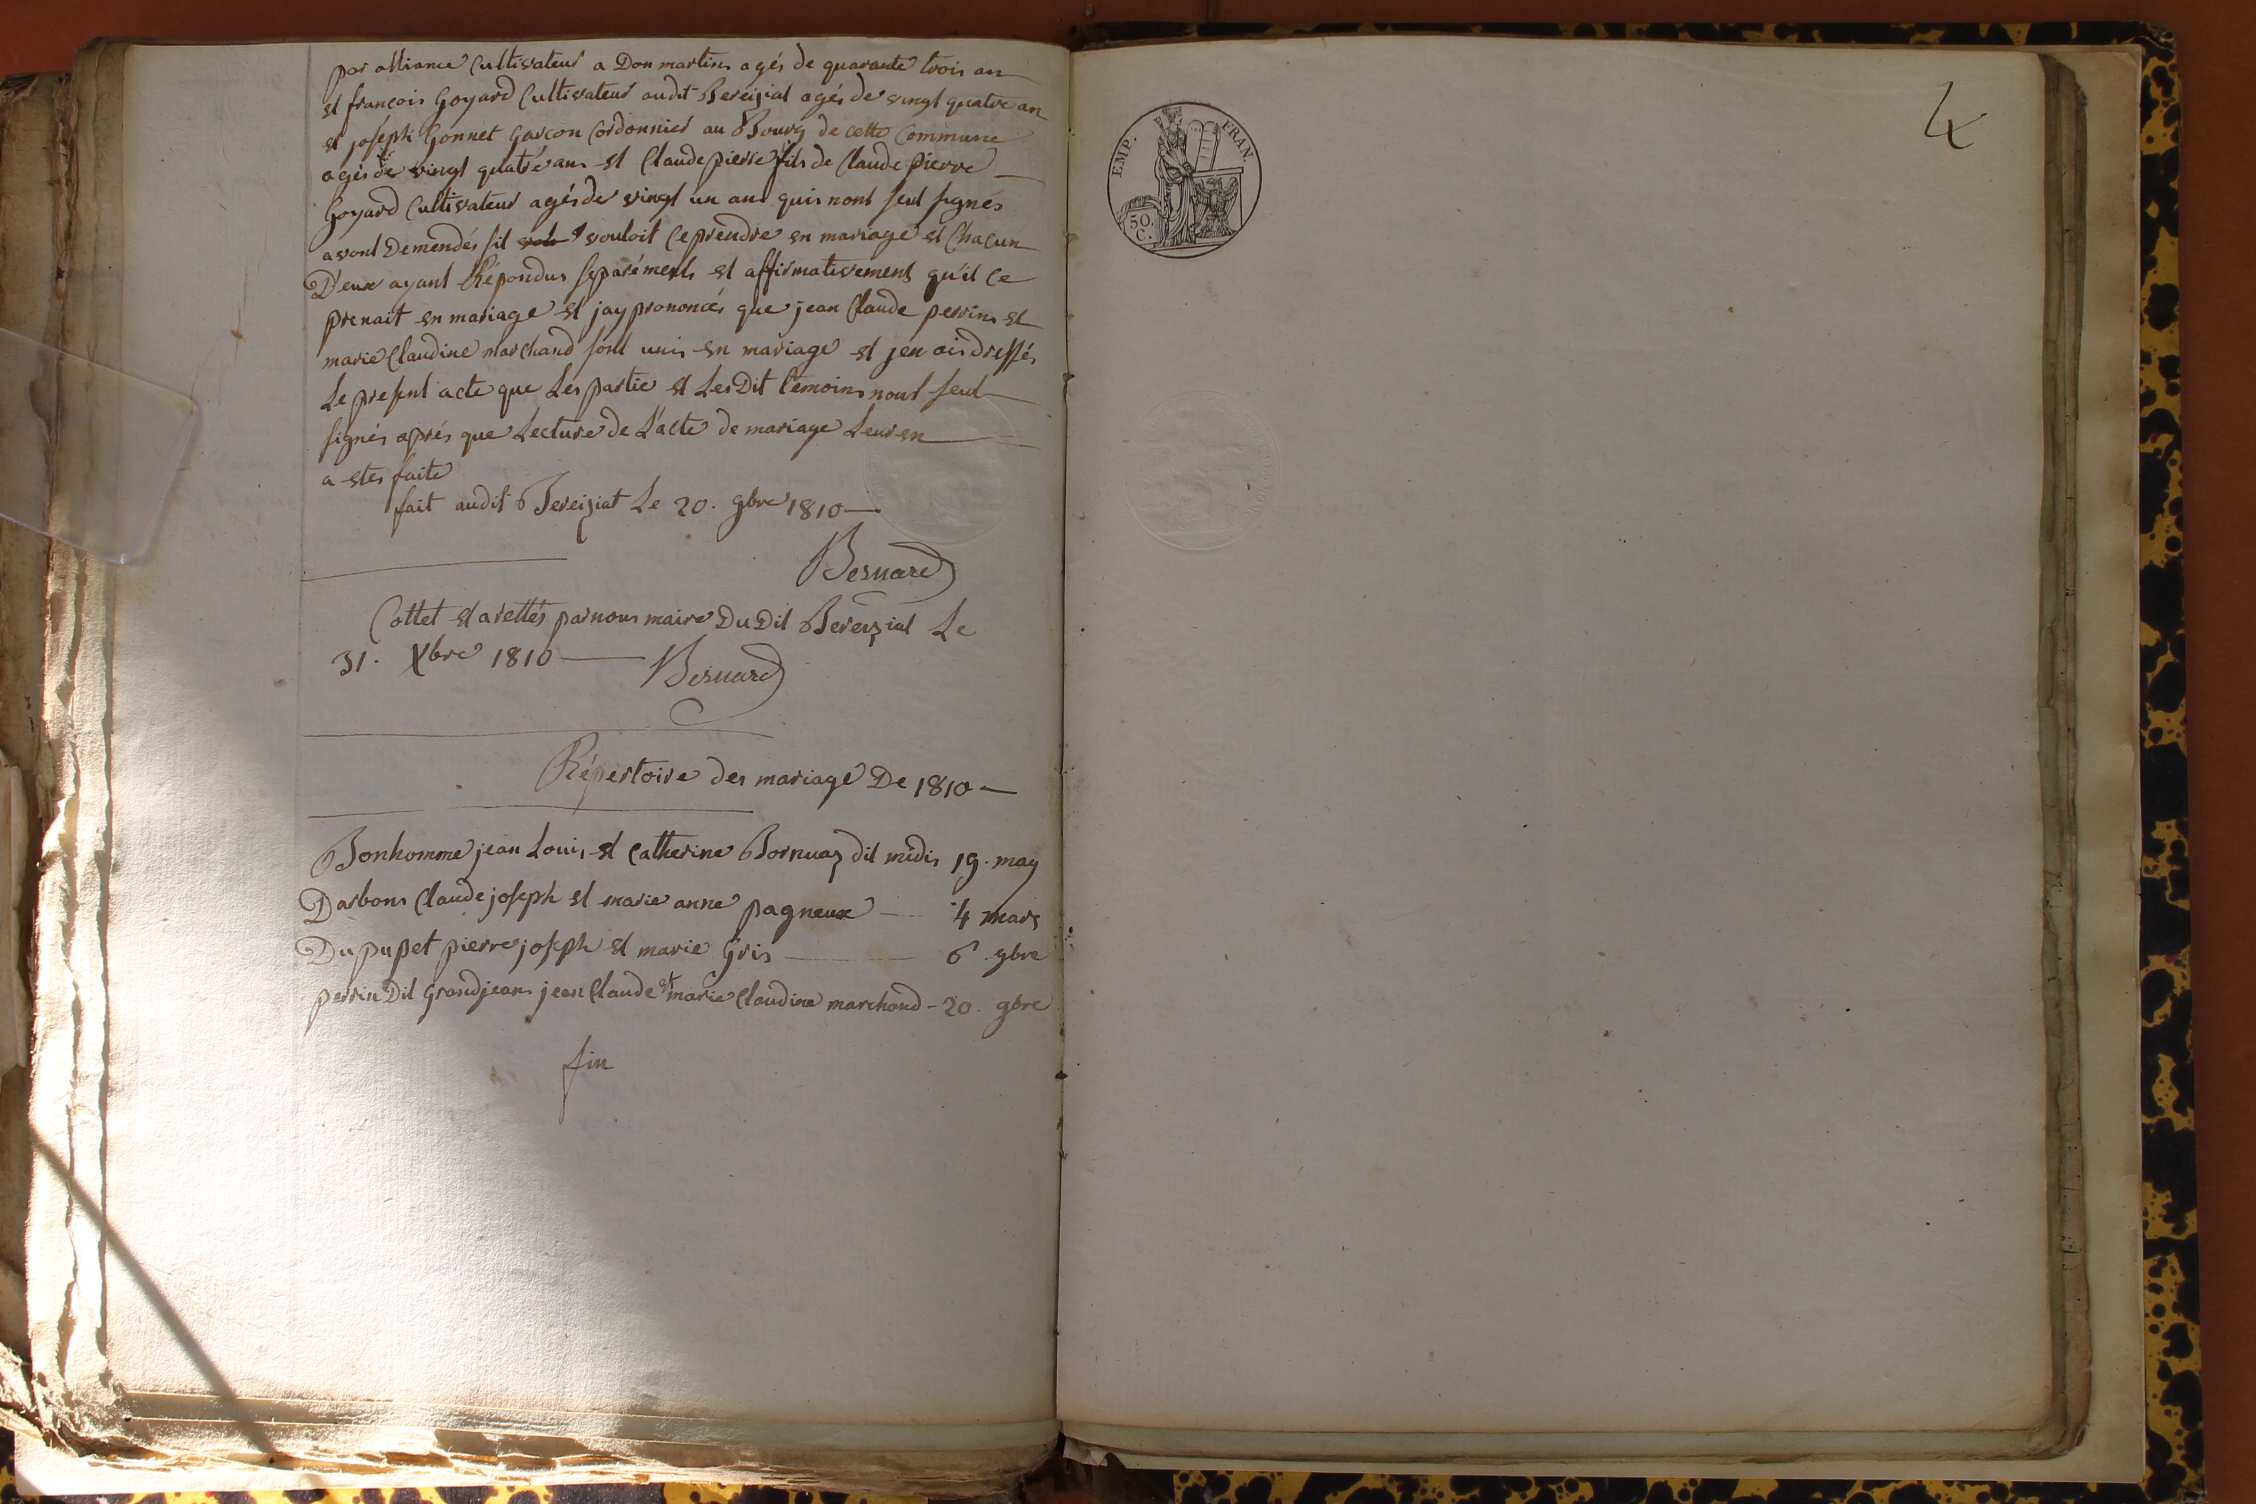 par alliance Cultivateur a Don martin agés de quarante trois an
et françois Goyard Cultivateur audit Bereiziat agés de vingt quatre an
et joseph Gonnet Garçon Cordonnier au Bourg de cette Commune
agés de vingt quatre ans et Claude pierre fils de Claude pierre
Goyard Cultivateur agés de vingt un ans quis nont seul signés
avont Demendés sil vouloit ce prendre en mariage et Chacun
D'eux ayant Répondus séparéments et affirmativement qu'il ce
prenait en mariage et jay prononcés que jean Claude perrin et
marie Claudine marchand sont unis en mariage et jen ais dressés
Le present acte que Les partie et Les Dit temoins nont seul
signés aprés que Lecture de L'acte de mariage Leur en
a etés faite
fait audit Bereiziat Le 20. 9bre 1810
Besnard
Cottet et arettés par nous maire Du Dit Bereiziat Le
31. Xbre 1810 Besnard
Répertoire des mariage De 1810
Bonhomme jean Louis et Catherine Bornuaz dit midis 19. may
Darbons Claude joseph et marie anne pagneux 4 mars
Dupupet pierre joseph et marie Gris 6 9bre
perrin Dit Grandjean jean Claude et marie Claudine marchand - 20. 9bre
fin
EMP. FRAN.
50.
C.
4